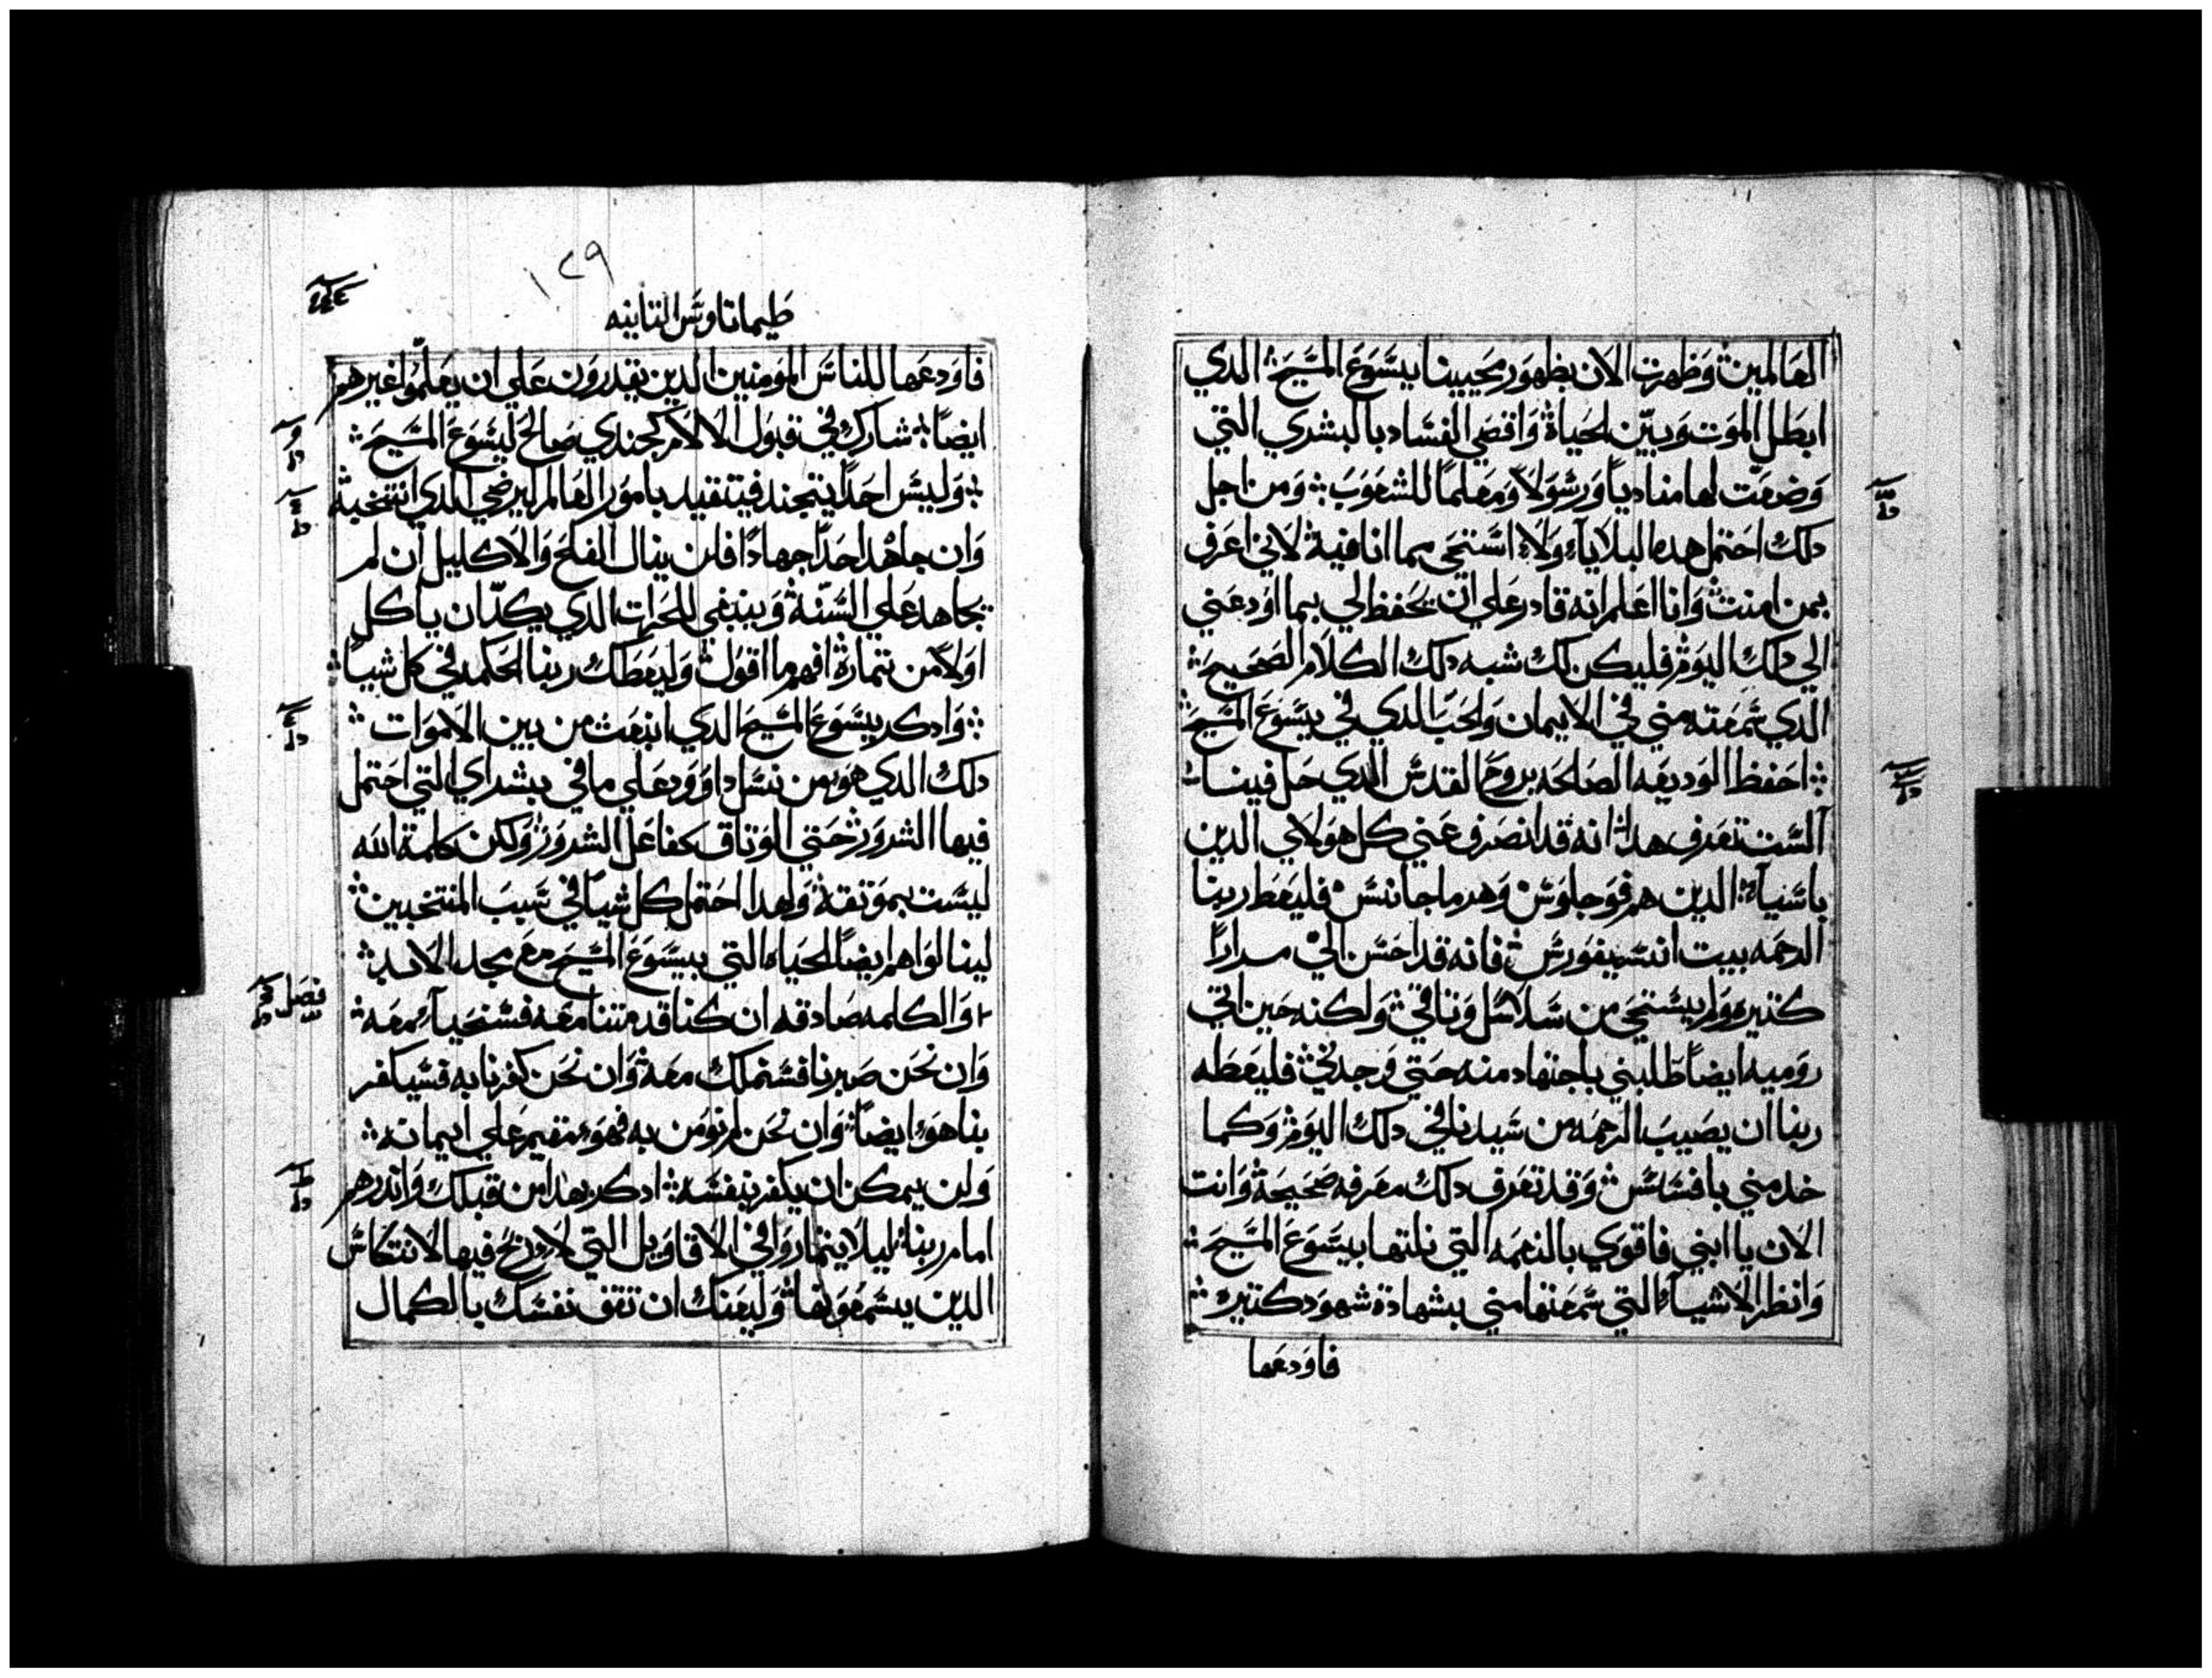 العالمين وظهرت الان بظهور محيينا يسوع المسيح الدي
ابطل الموت وبيّن الحياة واقصي الفساد بالبشري التي
وضعت لها مناديا ورسولا ومعلما للشعوب ومن اجل
دلك احتمل هده البلايا ولا استحي مما انا فية لاني اعرف
بمن امنت وانا اعلم انه قادر علي ان يحفظ لي بما اودعني
الي دلك اليوم فليكن لك شبه دلك الكلام الصحيح
الدي سمعته مني في الايمان والحب الدي في يسوع المسيح
احفظ الوديعه الصالحه بروح القدس الدي حل فينا
الست تعرف هدا انه قد انصرف عني كل هولاي الدين
باسيا الدين هم فوجلوس وهرماجانس فليعط ربنا
الرحمه بيت انسيفورس فانه قد احسن الي مرارا
كتيره ولم يستحي من سلاسل وتاقي ولكنه حين اتي
روميه ايضا طلبني باجتهاد منه حتي وجدني فليعطه
ربنا ان يصيب الرحمه من سيدنا في دلك اليوم وكما
خدمني بافسس وقد تعرف دلك معرفه صحيحة وانت
الان يا ابني فاقوي بالنعمه التي نلتها بيسوع المسيح
وانظر الاشيا التي سمعتها مني بشهادة شهود كتيره
فاودعها
١٢٩
طيماتاوس التانيه
فاودعها للناس المومنين الدين يقدرون علي ان يعلموا غيرهم
ايضا شارك في قبول الالام كجندي صالح ليسوع المسيح
وليس احدا يتجند فيتقيد بامور العالم ليرضي الدي انتخبه
وان جاهد احد جهادا فلن ينال الفلح والاكليل ان لم
يجاهد علي السنّة وينبغي للحرات الدي يكدّ ان ياكل
اولا من تماره افهم ما اقول وليعطك ربنا الحكمه في كل شيا
وادكر يسوع المسيح الدي انبعت من بين الاموات
دلك الدي هو من نسل داوود علي ما في بشراي التي احتمل
فيها الشرور حتي الوتاق كفاعل الشرور ولكن كلمة الله
ليست بموتقه ولهدا احتمل كل شيا في سبب المنتخبين
لينالوا هم ايضا الحياه التي بيسوع المسيح مع مجد الابد
والكلمه صادقه ان كنا قد متنا معه فسنحيا معه
وان نحن صبرنا فسنملك معه وان نحن كفرنا به فسيكفر
بنا هو ايضا وان نحن لم نومن به فهو مقيم علي ايمانه
ولن يمكن ان يكفر بنفسه ادكر بهدا من قبلك واندرهم
امام ربنا ليلا يتماروا في الاقاويل التي لا ربح فيها لانتكاس
الدين يسمعونها وليعنك ان تقف نفسك بالكمال
فصل